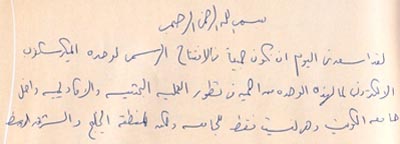 بسم الله الرحمن الرحيم
لقد اسعدنى اليوم ان نكون جميعاً بالافتتاح الرسمى لوحدة الميكرسكوب
الالكترونى لما لهذه الوحده من اهمية فى تطور العمليه البحثيه والاكاديميه داخل
جامعه الكويت وهى ليست فقط للجامعه ولكنه لمنطقة الخليج والشرق الاوسط